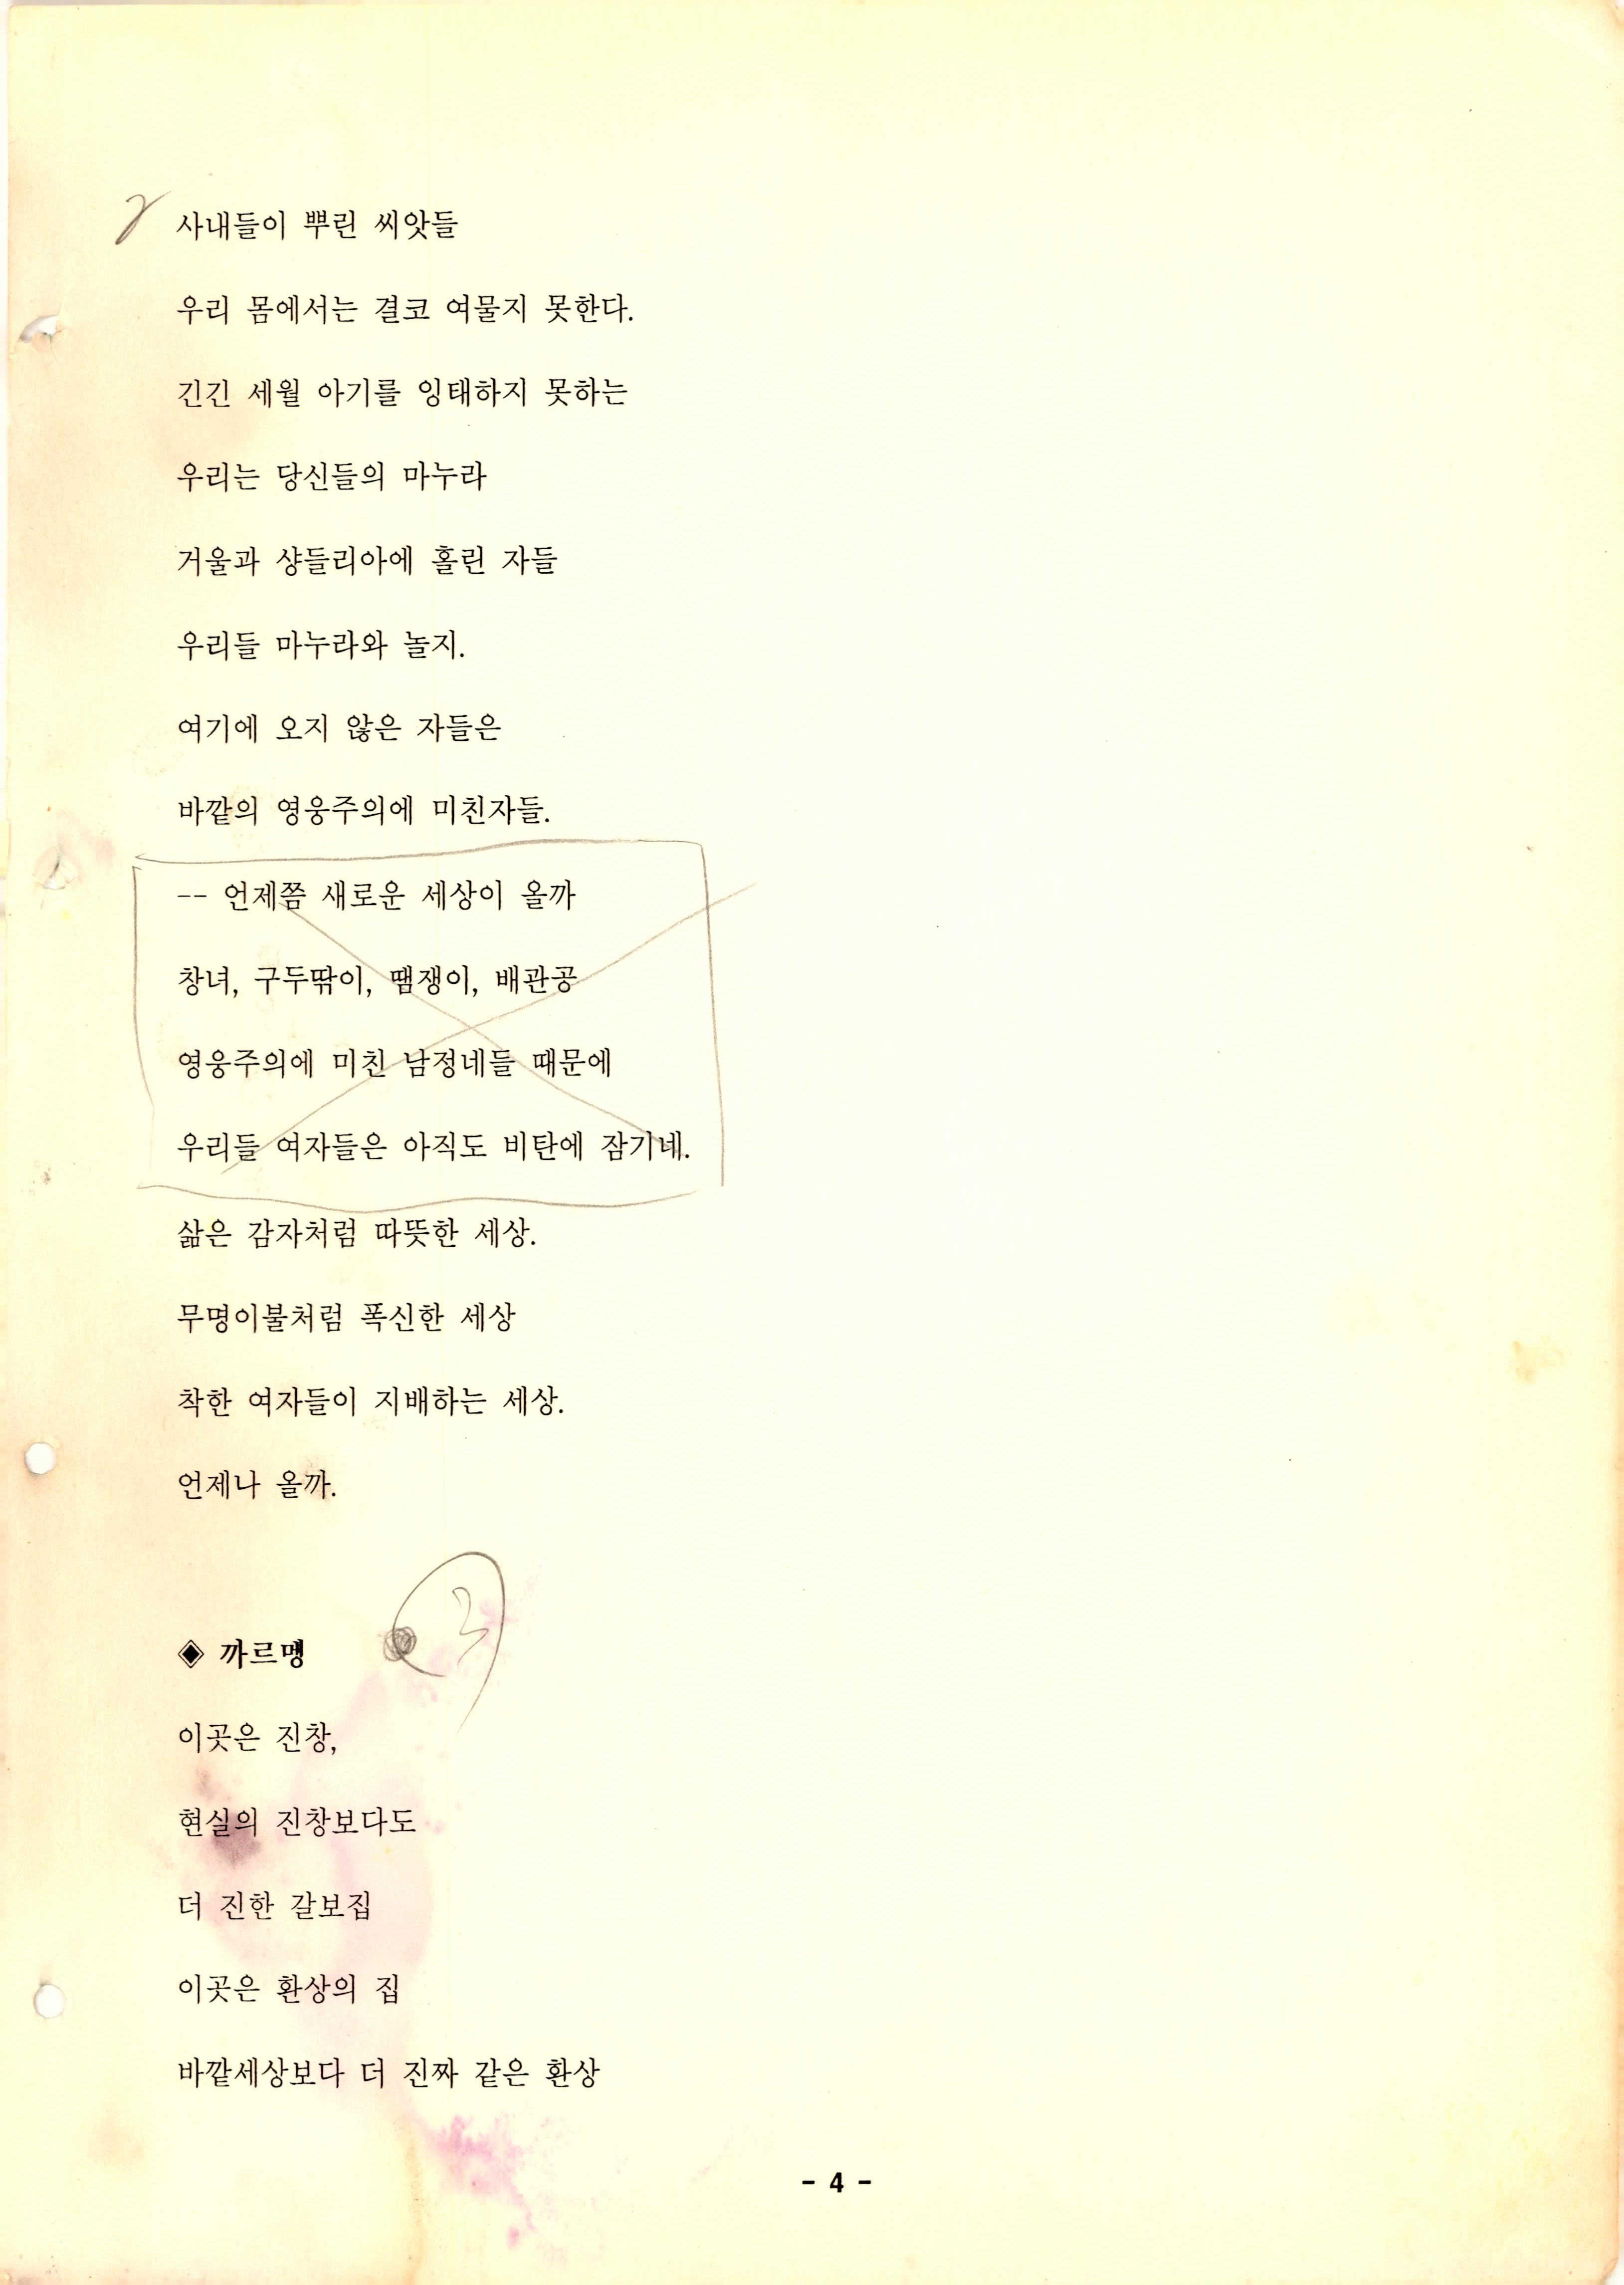 사내들이 뿌린 씨앗들
우리 몸에서는 결코 여물지 못한다.
긴긴 세월 아기를 잉태하지 못하는
우리는 당신들의 마누라
거울과 샹들리아에 홀린 자들
우리들 마누라와 놀지.
여기에 오지 않은 자들은
바깥의 영웅주의에 미친자들.
-- 언제쯤 새로운 세상이 올까
창녀, 구두딲이, 땜쟁이, 배관공
영웅주의에 미친 남정네들 때문에
우리들 여자들은 아직도 비탄에 잠기네.
삶은 감자처럼 따뜻한 세상.
무명이불처럼 폭신한 세상
착한 여자들이 지배하는 세상.
언제나 올까.
◈ 까르멩
이곳은 진창,
현실의 진창보다도
더 진한 갈보집
이곳은 환상의 집
바깥세상보다 더 진짜 같은 환상
- 4 -